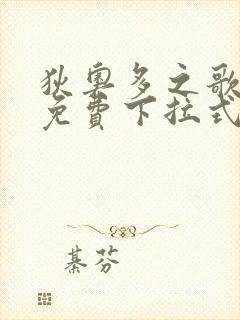 狄奥多之歌
免費下拉式
綦芬